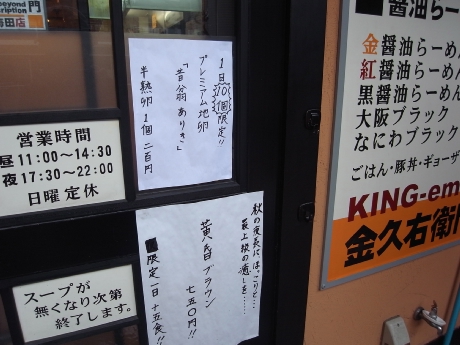 beyond
cription
門
梅田店
営業時間
昼 11:00～14:30
夜 17:30～22:00
日曜定休
スープが
無くなり次第
終了します。
1日10個限定!!
プレミアム地卵
「昔翁ありき」
半熟卵1個 二百円
秋の夜長にほっこりと…
最上級の癒しを……
黄昏ブラウン
七五〇円!!
限定一日十五食!!
醤油らー
金醤油らーめん
紅醤油らーめん
黒醤油らーめん
大阪ブラック
なにわブラック
ごはん・豚丼・ギョーザ
KING-em
金久右衛門